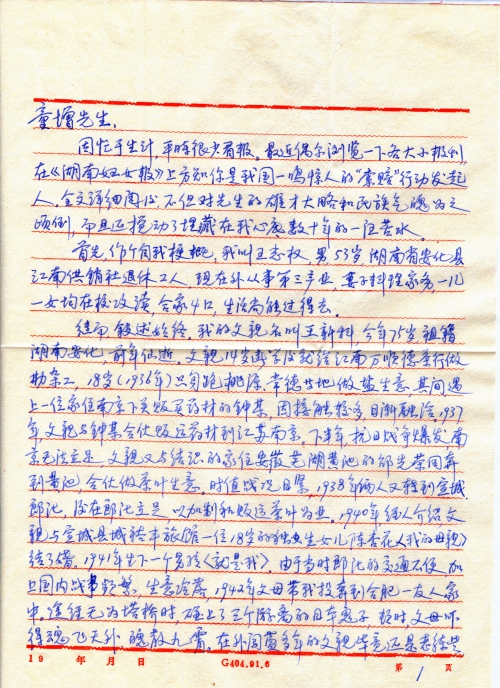 童增先生:
因忙于生计,平时很少看报。最近偶尔浏览一下各大小报刊,
在《湖南妇女报》上方知你是我国一鸣惊人的“索赔”行动发起
人。全文详细阅后,不但对先生的雄才大略和民族气魄为之
倾倒,而且还搅动了埋藏在我心底数十年的一汪苦水。
首先,作个自我梗概,我叫王志权,男53岁,湖南省安化县
江南供销社退休工人,现在外从事第三产业,妻子料理家务,一儿
一女均在校攻读,合家4口,生活尚能过得去。
继而叙述始终。我的父亲名叫王新科,今年75岁,祖籍
湖南安化,前年仙逝。父亲14岁到江南万顺德茶行做
勤杂工,18岁(1936年)只身跑桃源、常德等地做盐生意,其间遇
上一位家住南京下关贩买药材的钟某,因接触较多日渐融洽。1937
年,父亲与钟某合伙贩运药材到江苏南京。下半年,抗日战争爆发,南
京无法立足,父亲又与结识的家住安徽芜湖黄池的邹先荣同奔
到黄池,合伙做茶叶生意。时值战况日紧,1938年俩人又移到宣城
郎池,后在郎池立足,以加制和贩运茶叶为业。1940年经人介绍父
亲与宣城县城骑丰旅馆一位18岁的独女陈杏花(我的母亲)
结了婚。1941年生下一个男孩(就是我)。由于当时郎池的交通不便,加
上国内战事频繁,生意冷落,1942年父母带我投奔到合肥一友人家
中。途经无为塔桥时,碰上了三个游离的日本鬼子,板时父母吓
得魂飞天外,魄散九霄。在外闯荡多年的父亲毕竟还是老练些
19 年 月 日
G404.91.6
第 1 页